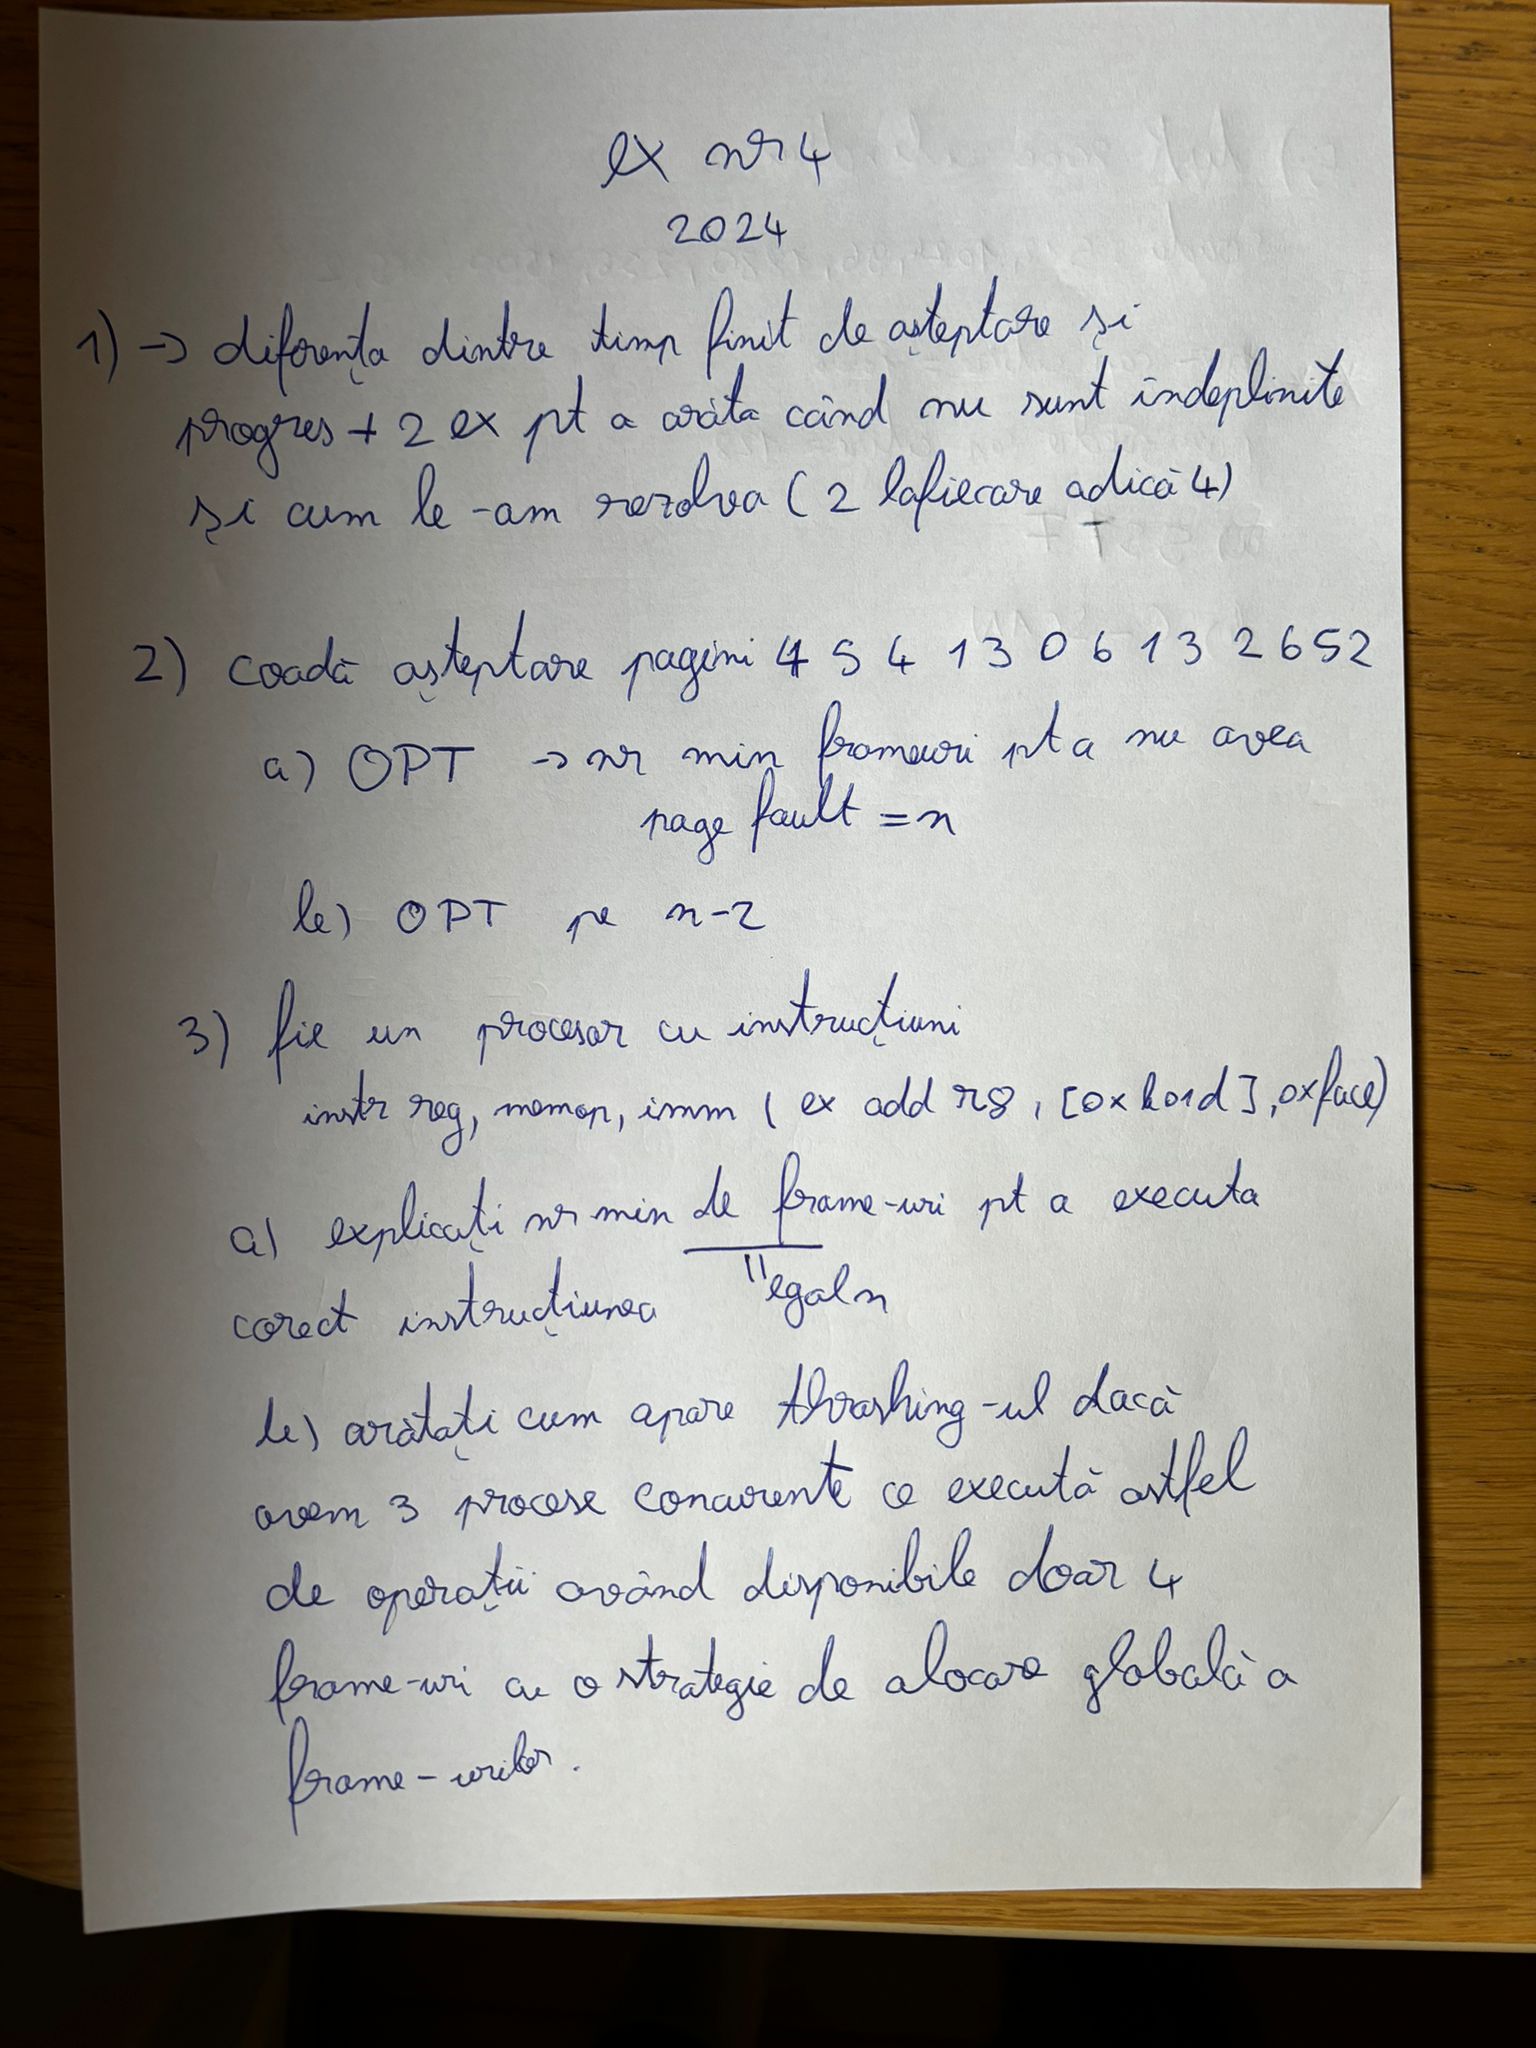 ex nr 4
2024
1) → diferența dintre timp finit de așteptare și
progres + 2 ex pt a arăta când nu sunt îndeplinite
și cum le-am rezolva ( 2 lafiecare adică 4)
2) coadă așteptare pagini 4 5 4 1 3 0 6 1 3 2 6 5 2
a) OPT → nr min frameuri pt a nu avea
page fault = n
b) OPT pe n-2
3) fie un procesor cu instrucțiuni
instr reg, memop, imm ( ex add r8, [0xb01d], 0xface)
a) explicați nr min de frame-uri pt a executa
corect instrucțiunea "egal n
b) arătați cum apare thrashing-ul dacă
avem 3 procese concurente ce execută astfel
de operații având disponibile doar 4
frame-uri cu o strategie de alocare globală a
frame-urilor.